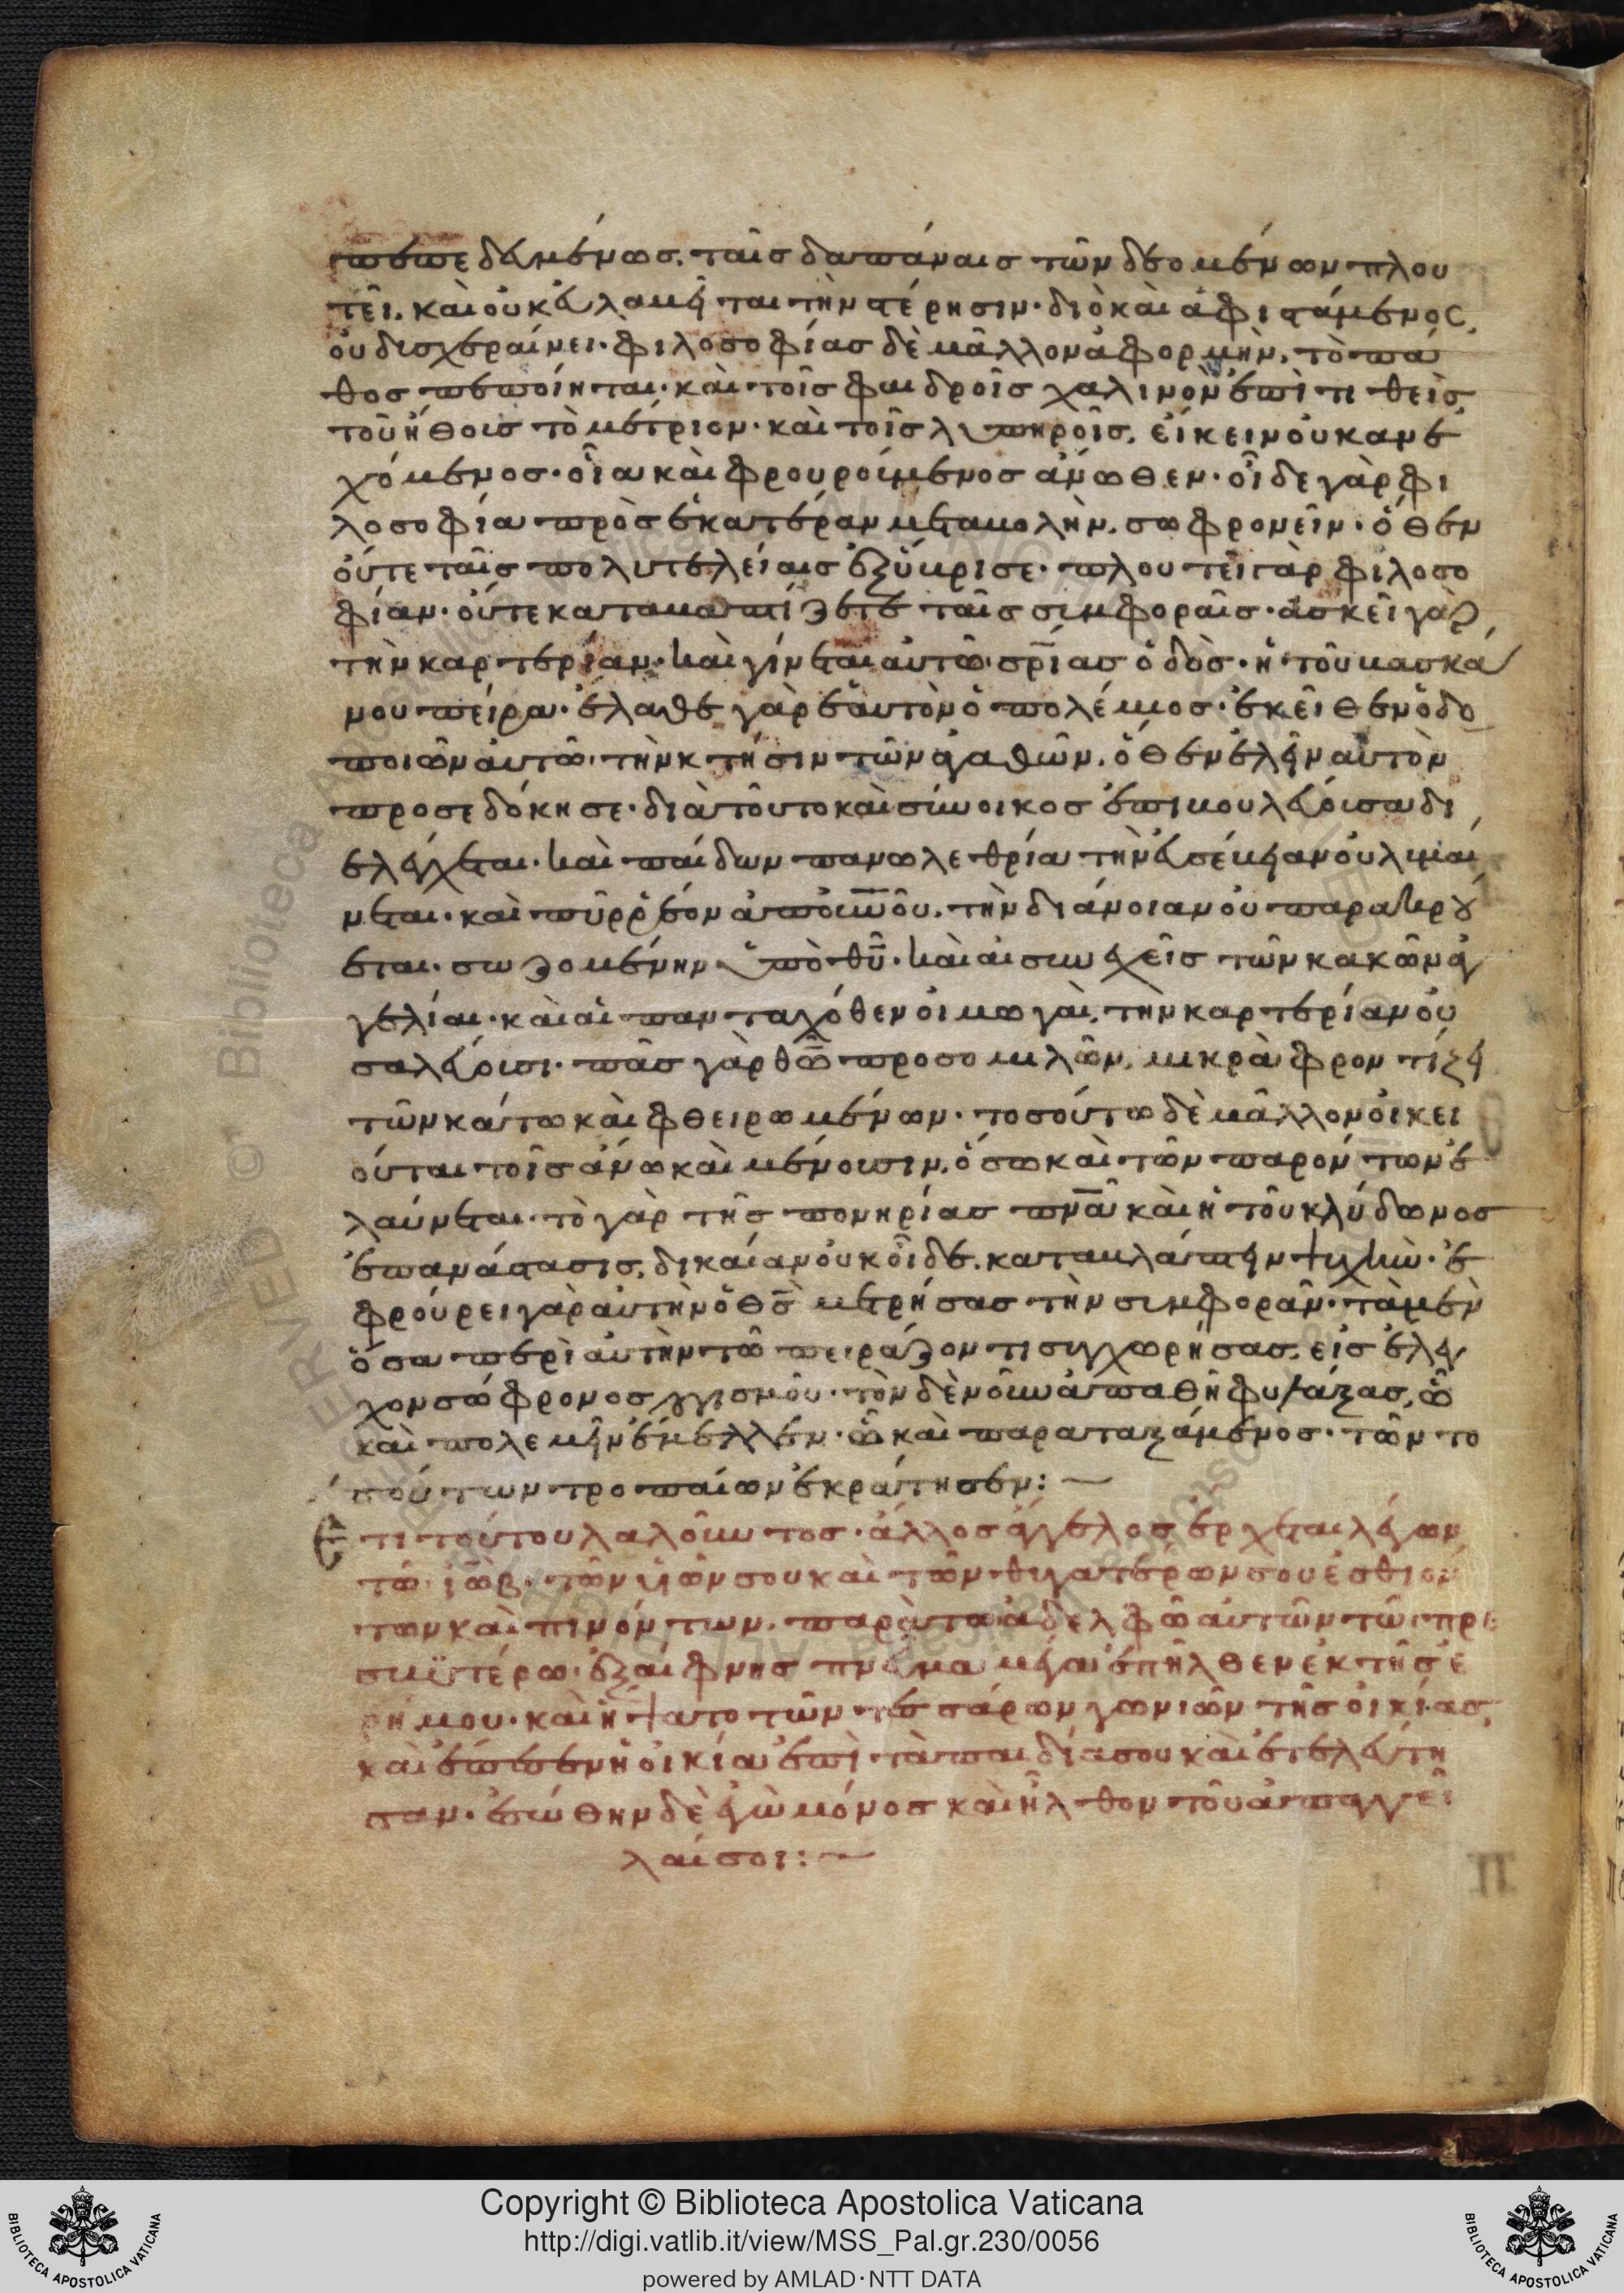 πεπεδημένως. ταῖς δαπάναις τῶν δεομένων πλου
τεῖ. καὶ οὐκ εὐλαβεῖται τὴν στέρησιν· διὸ καὶ ἀφιστάμενος,
οὐ δισχεραίνει· φιλοσοφίας δὲ μᾶλλον ἀφορμὴν, τὸ πά
θος πεποίηται· καὶ τοῖς φαιδροῖς χαλινὸν ἐπιτιθεὶς
τοῦ ἤθοις τὸ μέτριον· καὶ τοῖς λυπηροῖς, εἴκειν οὐκ ἀνε
χόμενος· οἷα καὶ φρουροίμενος ἄνωθεν· οἶδε γὰρ φι
λοσοφία πρὸς ἑκατέραν μεταβολὴν, σωφρονεῖν· ὅθεν
οὔτε ταῖς πολυτελείαις ἐξύβρισε· πλουτεῖ γὰρ φιλοσο
φίαν· οὔτε καταβαπτίζεται ταῖς σιμφοραῖς· ἀσκεῖ γὰρ
τὴν καρτερίαν· καὶ γίνεται αὐτῶ σρίας ὁδὸς· ἡ τοῦ βασκά
νου πεῖρα· ἔλαθε γὰρ ἑαυτὸν ὁ πολέμιος· ἐκεῖθεν ὁδο
ποιῶν αὐτῶ· τὴν κτῆσιν τῶν ἀγαθῶν, ὅθεν ἑλεῖν αὐτὸν
προσεδόκησε· διὰ τοῦτο καὶ σύνοικος ἐπιβουλεύουσα δι
ελέγχεται· καὶ παίδων πανωλεθρία τὴν εὐσέβειαν οὐ λυμαί
νεται· καὶ πῦρ ῥέον ἀπὸ οὐνοῦ. τὴν διάνοιαν οὐ παρακρού
εται· σωζομένην ὑπὸ θῦ· καὶ αἱ συνεχεῖς τῶν κακῶν ἀγ
γελίαι· καὶ αἱ πανταχόθεν οἰμωγαὶ, τὴν καρτερίαν οὐ
σαλεύουσι· πᾶς γὰρ θῶ προσομιλῶν, μικρὰ φροντίζει
τῶν κάτω καὶ φθειρωμένων· τοσούτω δὲ μᾶλλον οἰκει
οῦται τοῖς ἄνω καὶ μένουσιν, ὅσω καὶ τῶν παρόντων ἐ
λαύνεται· τὸ γὰρ τῆς πονηρίας πνα καὶ ἡ τοῦ κλύδωνος
ἐπανάστασις, δικαίαν οὐκ οἶδε. καταβλάπτειν ψυχὴν· ἐ
φρούρει γὰρ αὐτὴν ὁ θσ μετρήσας τὴν σιμφορὰν· τὰ μὲν
ὅσα περὶ αὐτὴν τῶ πειράζοντι συγχωρήσας, εἰς ἔλεγ
χον σώφρονος λογισμοῦ· τὸν δὲ νοῦν ἀπαθῆ φυλάξας, ὧ
καὶ πολεμεῖν ἔμελλεν· ὧ καὶ παραταξάμενος· τῶν το
σούτων τροπαίων ἐκράτησεν:
Ἔτι τούτου λαλοῦντος· ἄλλος ἄγγελος ἔρχεται λέγων
τῶ ἰὼβ· τῶν υἱῶν σου καὶ τῶν θυγατέρων σου ἐσθιόν
των καὶ πινόντων, παρὰ τῶ ἀδελφῶ αὐτῶν τῶ πρε
σβϋτέρω· ἐξαίφνης πνεῦμα μέγα ἐπῆλθεν ἐκ τῆς ἐ
ρήμου· καὶ ἥψατο τῶν τεσσάρων γωνιῶν τῆς οἰκίας,
καὶ ἔπεσεν ἡ οἰκία ἐπὶ τὰ παιδία σου καὶ ἐτελεύτη
σαν· ἐσώθην δὲ ἐγὼ μόνος καὶ ἦλθον τοῦ ἀπαγγεῖ
λαί σοι:
Copyright © Biblioteca Apostolica Vaticana
http://digi.vatlib.it/view/MSS_Pal.gr.230/0056
powered by AMLAD·NTT DATA